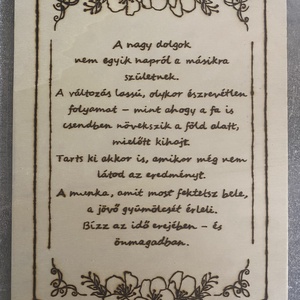 A nagy dolgok
nem egyik napról a másikra
születnek.
A változás lassú, olykor észrevétlen
folyamat – mint ahogy a fa is
csendben növekszik a föld alatt,
mielőtt kihajt.
Tarts ki akkor is, amikor még nem
látod az eredményt.
A munka, amit most fektetsz bele,
a jövő gyümölcsét érleli.
Bízz az idő erejében – és
önmagadban.